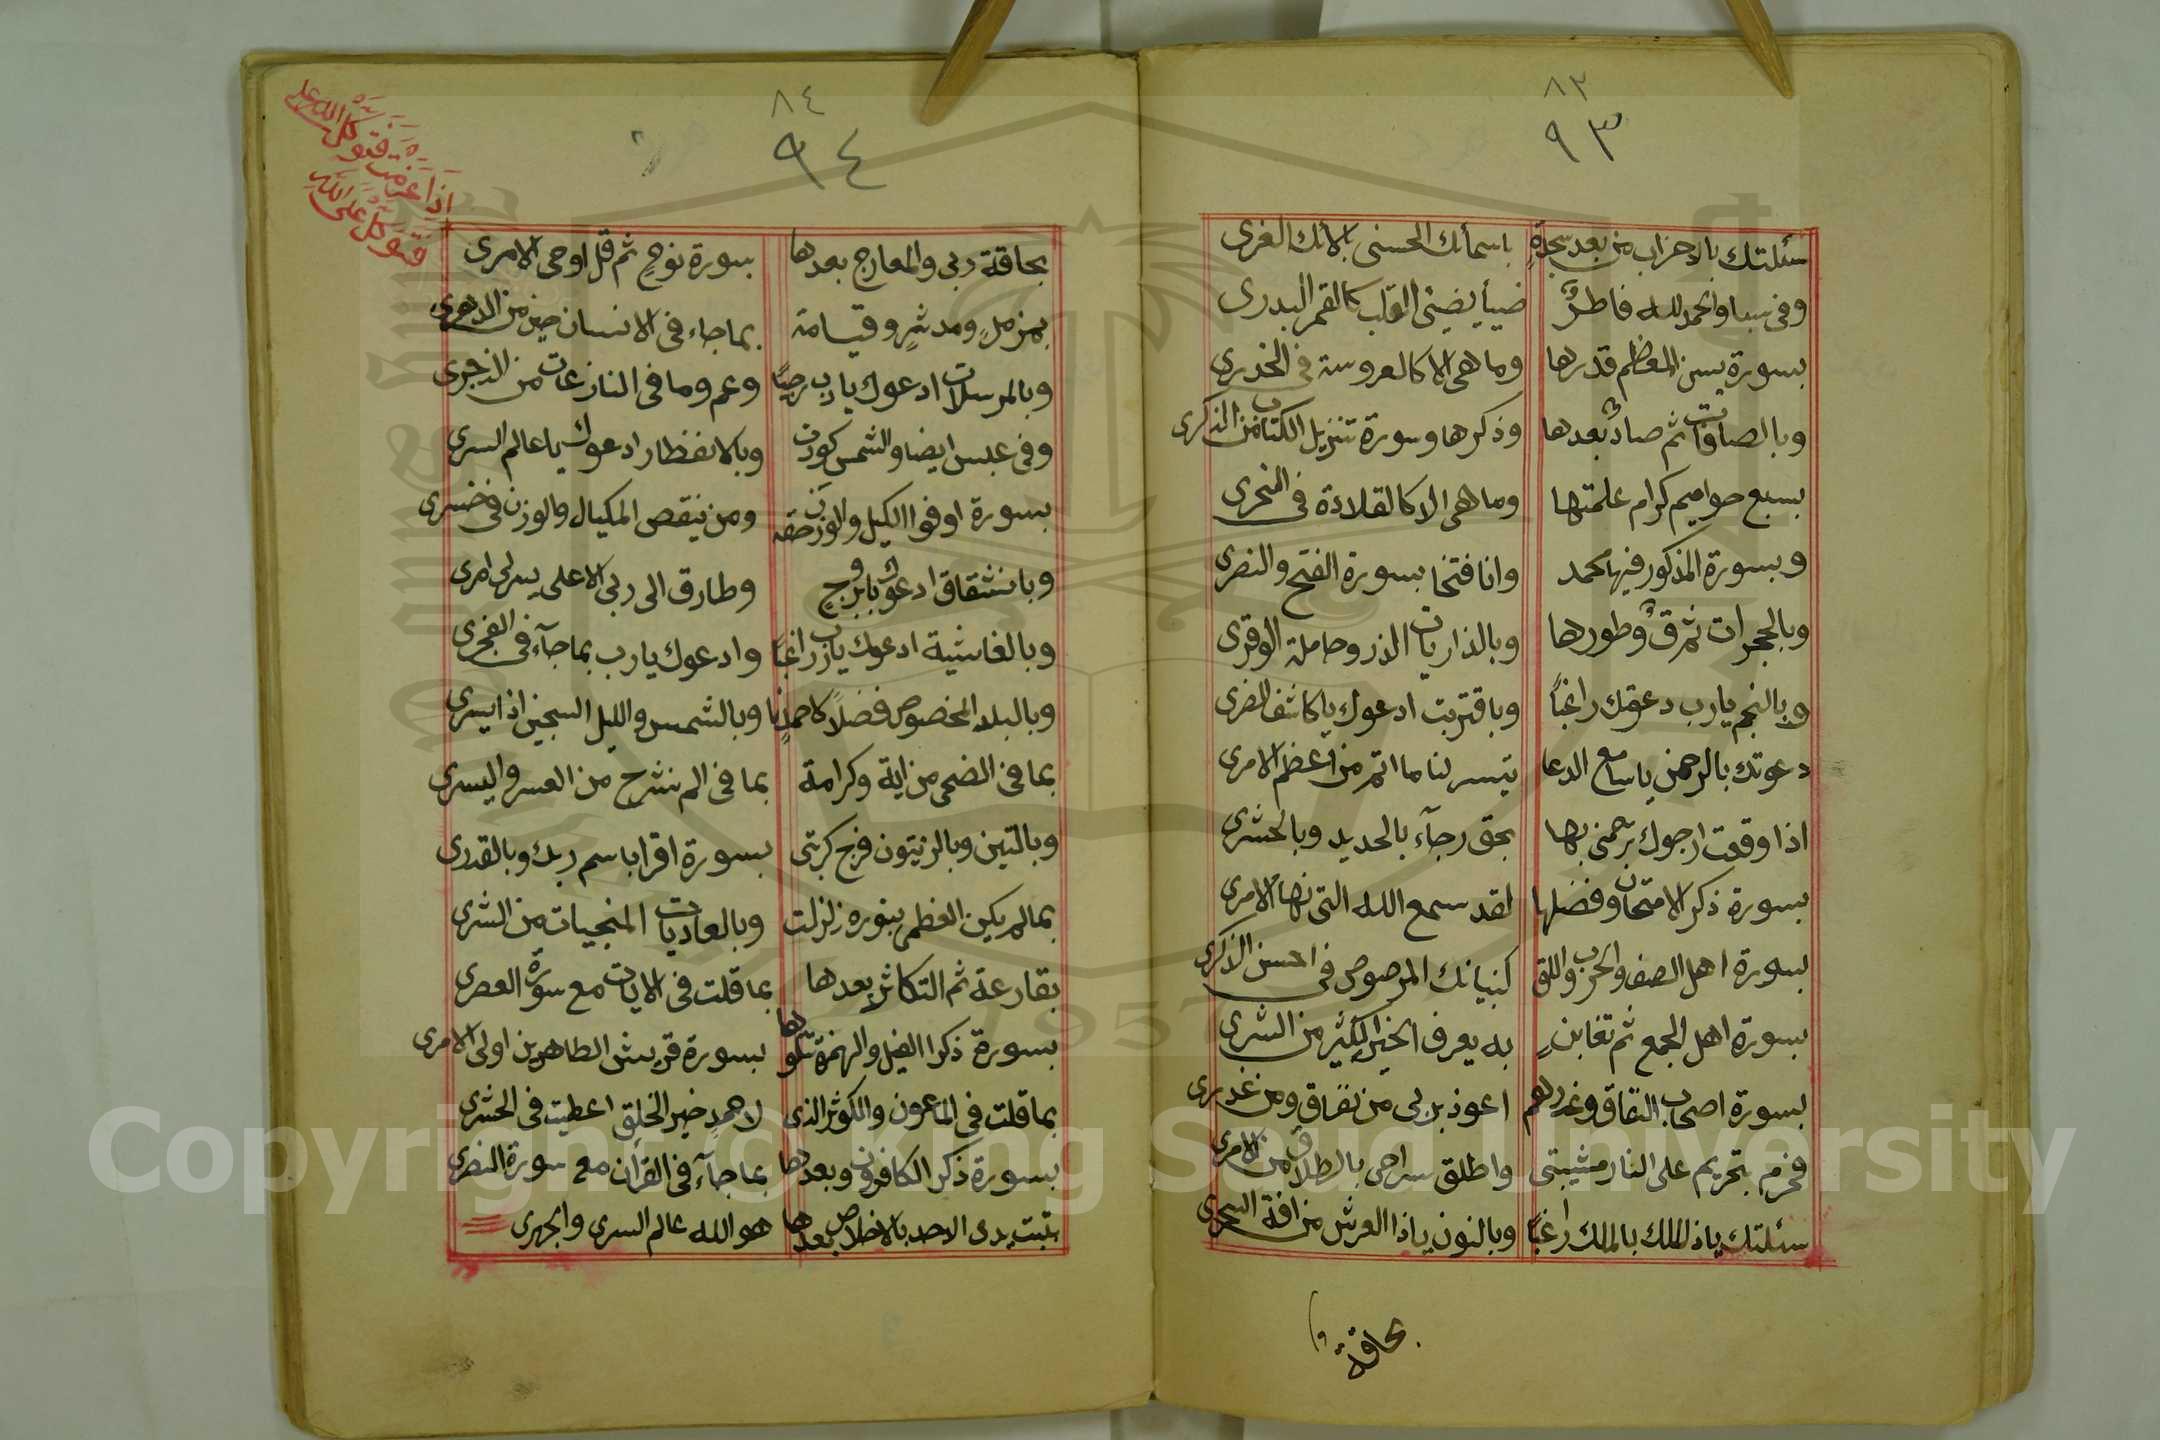 ٨٣
٩٣
سئلتك بالاحزاب من بعد سجدةٍ باسمائك الحسنى بالائك الغرى
وفى سبا والحمد لله فاطرٌ ضيأ يضيئ القلب كالقمر البدرى
بسورة يسن المعظم قدرها وما هى الا كالعروسة فى الخدرى
وبالصافات ثم صادٌ بعدها وذكرها وسورة تنزيل الكتاب من الذكرى
بسبع حواميم كرام علمتها وما هى الا كالقلادة فى النحرى
وبسورة المذكور فيها محمد وانا فتحنا بسورة الفتح والنصرى
وبالحجرات ثم قٌ وطورها وبالذاريات الذر وحاملة الوقرى
وبالنجم يارب دعوتك راغبًا وباقتربت ادعوك ياكاشف الضرى
دعوتك بالرحمن ياسامع الدعا تيسر لنا ما اتم من اعظم الامرى
اذا وقعت ارجوك ترحمنى بها بحق رجآء بالحديد وبالحشرى
بسورة ذكر الامتحان وفضلها لقد سمع الله التى الامرى
بسورة اهل الصف والحرب واللقى كبنيانك المرصوص فى احسن الذكرى
بسورة اهل الجمع ثم تغابنٍ به يعرف الخير الكثير من الشرى
بسورة اصحاب النفاق وغدرهم اعوذ بربى من نفاق ومن غدرى
فحرم بتحريم على النار مشيبتى واطلق سراحى بالطلاق من الامرى
سئلتك ياذالملك بالملك راغبًا وبالنون ياذا العرش من افة السحرى
بحاقة
٨٤
٩٤
اذا عزمت فتوكل على الله
فتوكل على الله
بحاقة ربى والمعارج بعدها بسورة نوحٍ ثم قل اوحى الامرى
بمزملٍ ومدثرٍ وقيامة بماجاء فى الانسان حين من الدهرى
وبالمرسلات ادعوك يارب رجيًا وعم وما فى النازعات من الزجرى
وفى عبس ايضا والشمس كورت وبالانفطار ادعوك ياعالم السرى
بسورة اوفوا الكيل والوزن حقه ومن ينقص المكيال والوزن فى خسرى
وبانشقاق ادعوك بابروجٍ وطارق الى ربى الاعلى يسر لى امرى
وبالغاشية ادعوك يارب راغبًا وادعوك يارب بماجآء فى الفجرى
وبالبلد المخصوص فضلاً لاحمدٍ وبالشمس والليل السجين اذا يسرى
بما فى الضحى من اية وكرامة بما فى الم نشرح من العسر واليسرى
وبالتين وبالزيتون فرج كربتى بسورة اقرا باسم ربك وبالقدرى
بمالم يكن العظم بنوره زلزلت وبالعاديات المنجيات من الشرى
بقارعة ثم التكاثر بعدها بما قلت فى الايات مع سورة العصرى
بسورة ذكر االفيل والهمزة تتلوها بسورة قريش الطاهرين اولى الامرى
بما قلت فى الماعون والكوثر الذى لاحمدٍ خير الخلق اعطيت فى الحشرى
بسورة ذكر الكافرون وبعدها بماجآء فى القرآن مع سورة النصرى
بتبت يدى الاحد بالاخلاص بعدها هو الله عالم السرى والجهرى
Copyright © King Saud University
1957